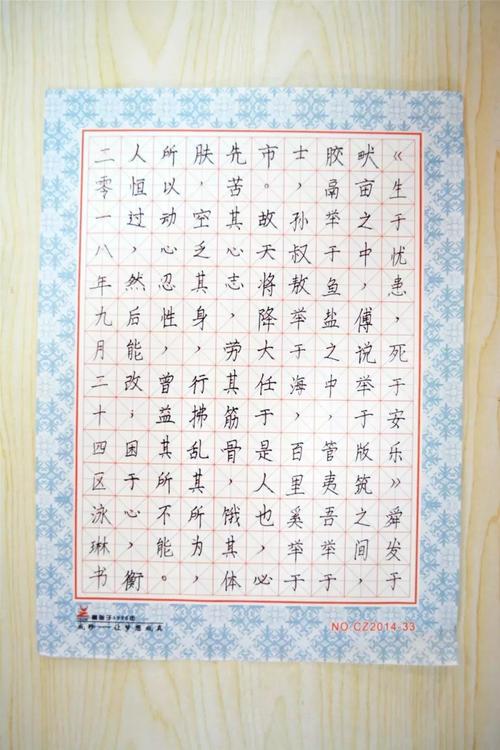 《生于忧患，死于安乐》舜发于
畎亩之中，傅说举于版筑之间，
胶鬲举于鱼盐之中，管夷吾举于
士，孙叔敖举于海，百里奚举于
市。故天将降大任于是人也，必
先苦其心志，劳其筋骨，饿其体
肤，空乏其身，行拂乱其所为，
所以动心忍性，曾益其所不能。
人恒过，然后能改；困于心，衡
二零一八年九月二十四区泳琳书
让梦想成真
NO:CZ2014-33